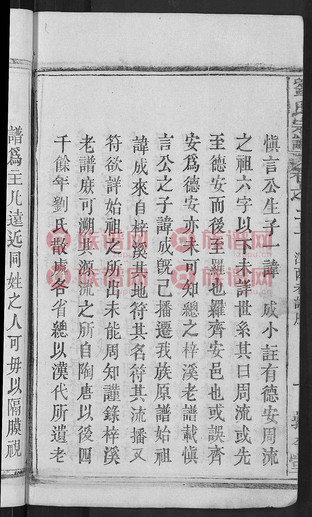 慎言公生子二諱 成小註有德安周流
之祖六字以下未詳世系其曰周流或先
至德安而後至羅也羅齊安邑也或誤齊
安爲德安亦未可知總之梓溪老譜載慎
言公之子諱成旣已播遷我族原譜始祖
諱成來自梓溪其地符其名符其流播又
符欲詳始祖之所出未能周知謹錄梓溪
老譜庶可溯其源流之所自陶唐以後四
千餘年劉氏散處各省總以漢代所遺老
譜爲主凡遠近同姓之人可毋以隔膜視